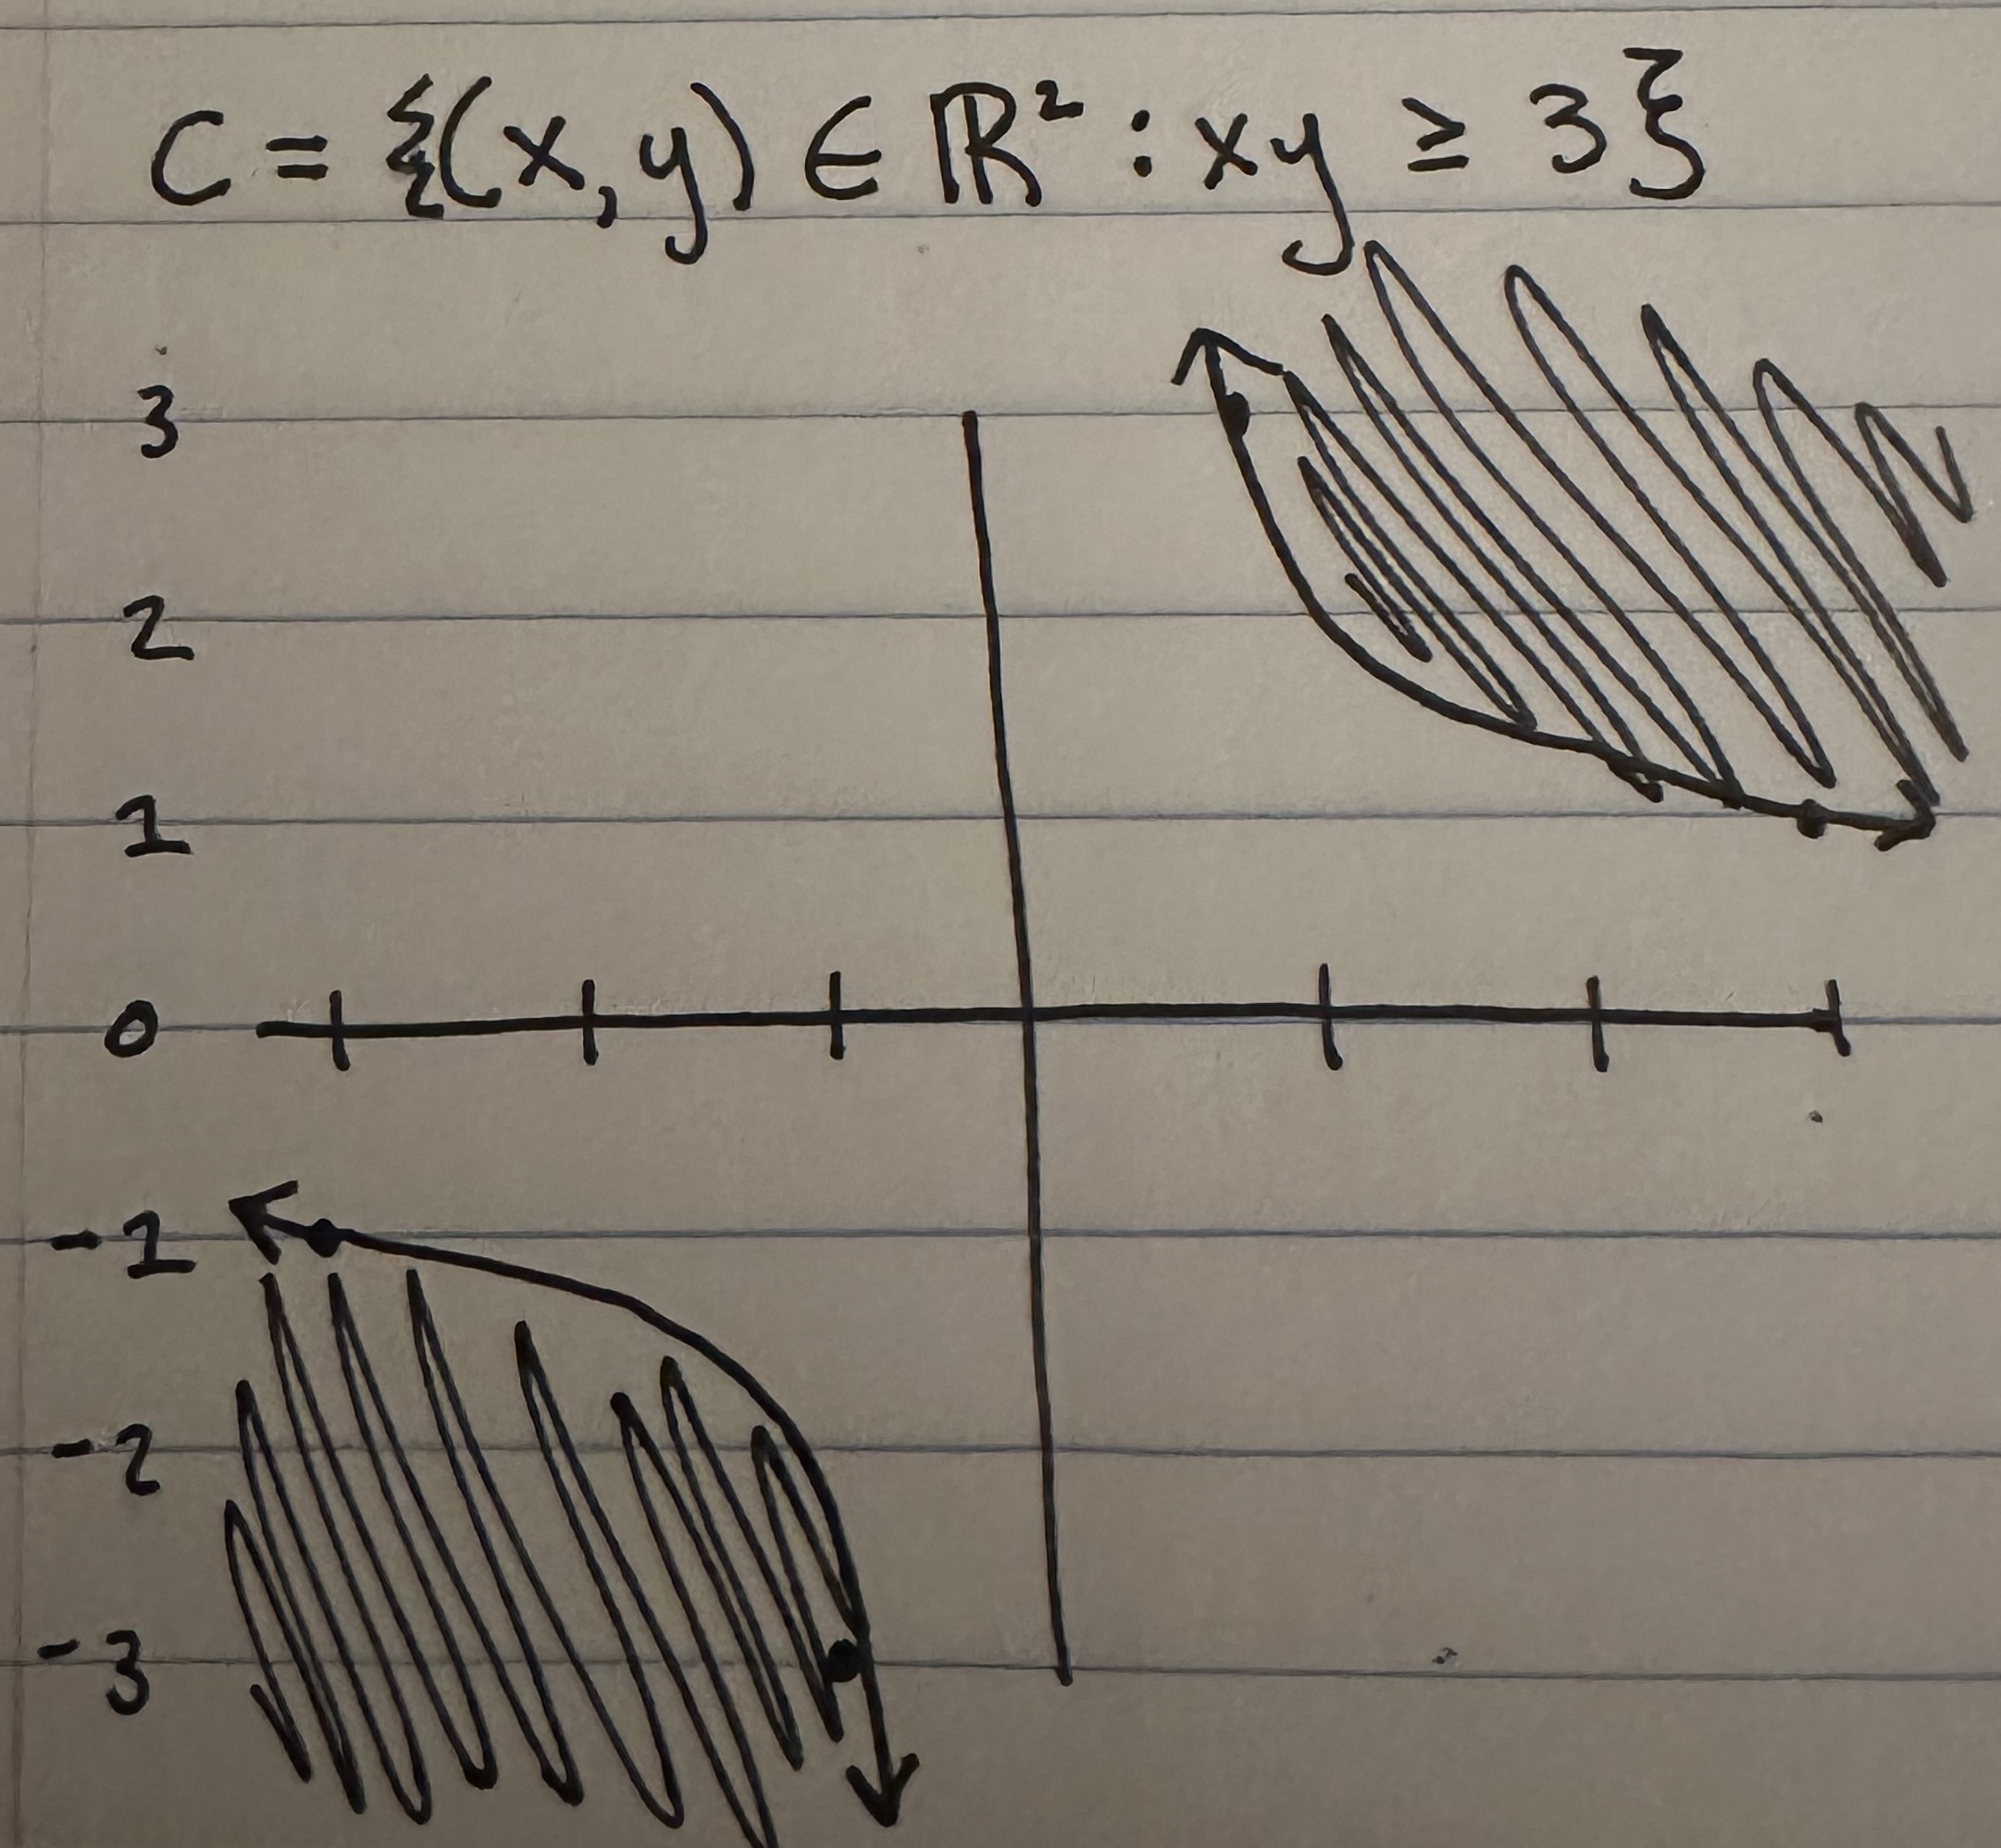 C = {(x, y) ∈ ℝ² : xy ≥ 3}
3
2
1
0
-1
-2
-3